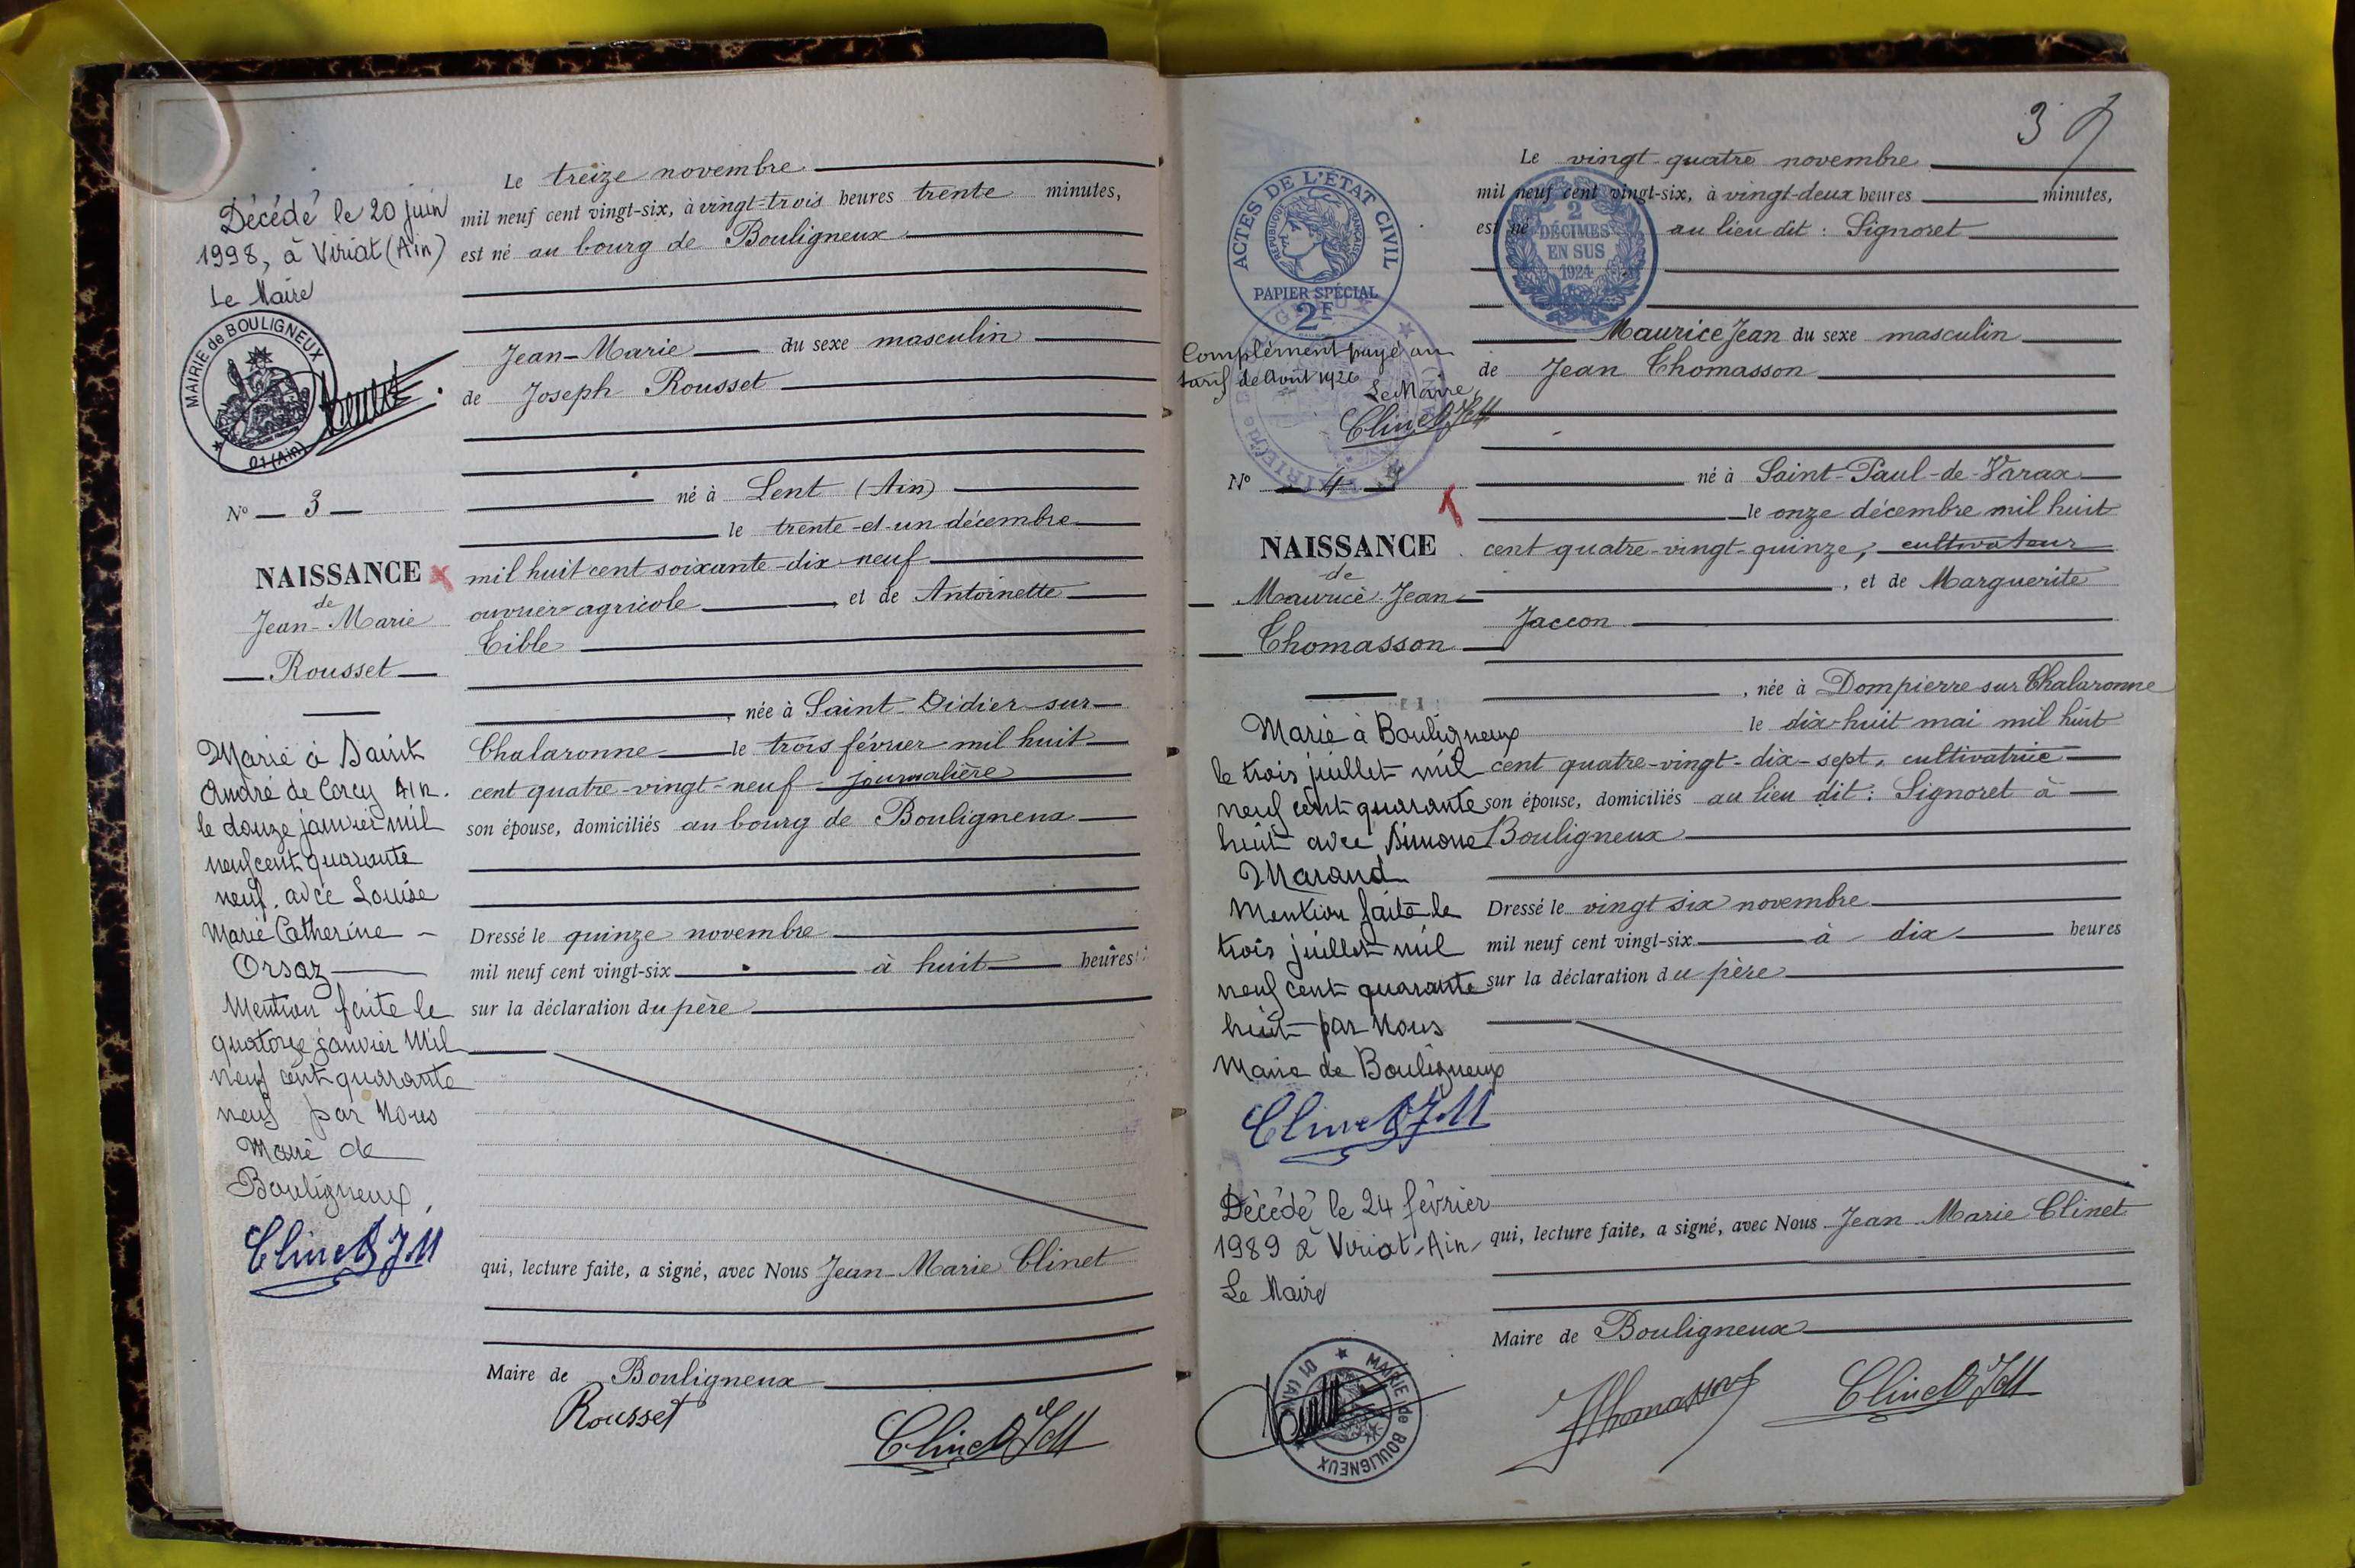 Décédé le 20 juin
1998, à Viriat (Ain)
Le Maire
MAIRIE de BOULIGNEUX
01 (Ain)
N° 3
NAISSANCE
de
Jean-Marie
Rousset
Marié à Saint
André de Corcy Ain.
le douze janvier mil
neuf cent quarante
neuf. avec Louise
Marie Catherine
Orsaz
Mention faite le
quatorze janvier Mil
neuf cent quarante
neuf par Nous
Maire de
Bouligneux,
Clinet JM
Le treize novembre
mil neuf cent vingt-six, à vingt-trois heures trente minutes,
est né au bourg de Bouligneux
Jean-Marie du sexe masculin
de Joseph Rousset
né à Lent (Ain)
le trente-et-un décembre
mil huit cent soixante-dix-neuf
ouvrier agricole, et de Antoinette
Tible
, née à Saint-Didier-sur-
Chalaronne le trois février mil huit
cent quatre-vingt-neuf journalière
son épouse, domiciliés au bourg de Bouligneux
Dressé le quinze novembre
mil neuf cent vingt-six à huit heures
sur la déclaration du père
qui, lecture faite, a signé, avec Nous Jean-Marie Clinet
Maire de Bouligneux
Rousset
Clinet JM
3
ACTES DE L'ÉTAT CIVIL
RÉPUBLIQUE FRANÇAISE
PAPIER SPÉCIAL
2F
2
DÉCIMES
EN SUS
1924
Complément payé au
tarif de Août 1926
Le Maire,
Clinet JM
N° 4
NAISSANCE
de
Maurice Jean
Thomasson
Marié à Bouligneux
le trois juillet mil
neuf cent quarante
huit avec Simone
Marand
Mention faite le
trois juillet mil
neuf cent quarante
huit par Nous
Maire de Bouligneux
Clinet JM
Décédé le 24 février
1989 à Viriat-Ain-
Le Maire
MAIRIE de BOULIGNEUX
01 (Ain)
Le vingt-quatre novembre
mil neuf cent vingt-six, à vingt-deux heures minutes,
est né au lieu dit : Signoret
Maurice Jean du sexe masculin
de Jean Thomasson
né à Saint-Paul-de-Varax
le onze décembre mil huit
cent quatre-vingt-quinze, cultivateur
, et de Marguerite
Jaccon
, née à Dompierre sur Chalaronne
le dix-huit mai mil huit
cent quatre-vingt-dix-sept, cultivatrice
son épouse, domiciliés au lieu dit : Signoret à
Bouligneux
Dressé le vingt six novembre
mil neuf cent vingt-six à dix heures
sur la déclaration du père
qui, lecture faite, a signé, avec Nous Jean Marie Clinet
Maire de Bouligneux
Thomasson
Clinet JM